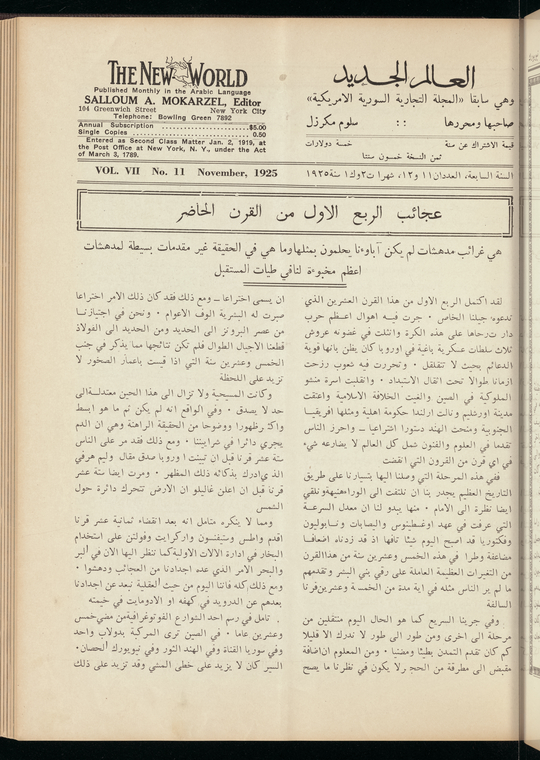 THE NEW WORLD
Published Monthly in the Arabic Language
SALLOUM A. MOKARZEL, Editor
104 Greenwich Street New York City
Telephone: Bowling Green 7892
Annual Subscription $5.00
Single Copies 0.50
Entered as Second Class Matter Jan. 2, 1919, at
the Post Office at New York, N. Y., under the Act
of March 3, 1789.
العالم الجديد
وهي سابقا «المجلة التجارية السورية الامريكية»
صاحبها ومحررها :: سلوم مكرزل
قيمة الاشتراك عن سنة خمسة دولارات
ثمن النسخة خمسون سنتا
VOL. VII No. 11 November, 1925
السنة السابعة، العددان ١١ و١٢، شهرا ت٢ وك١ سنة ١٩٢٥
عجائب الربع الاول من القرن الحاضر
هي غرائب مدهشات لم يكن آباوءنا يحلمون بمثلها وما هي في الحقيقة غير مقدمات بسيطة لمدهشات
اعظم مخبوءة لنا في طيات المستقبل
لقد اكتمل الربع الاول من هذا القرن العشرين الذي
ندعوه جيلنا الخاص ٠ جرت فيه اهوال اعظم حرب
دار ت رحاها على هذه الكرة واثلت في غضونه عروش
ثلاث سلطات عسكرية باغية في اوروبا كان يظن بانها قوية
الدعائم بحيث لا تتقلقل ٠ وتحررت فيه شعوب رزحت
ازمانا طوالا تحت اثقال الاستبداد ٠ وانقلبت اسرة منشو
الملوكية في الصين والغيت الخلافة الاسلامية واعتقت
مدينة اورشليم ونالت ارلندا حكومة اهلية ومثلها افريقيا
الجنوبية ومنحت الهند دستورا اشتراعيا ــ واحرز الناس
تقدما في العلوم والفنون شمل كل العالم لا يضارعه شيء
في اي قرن من القرون التي انقضت
ففي هذه المرحلة التي وصلنا اليها بتسيارنا على طريق
التاريخ العظيم يجدر بنا ان نلتفت الى الوراء هنيهة ونلقي
ايضا نظرة الى الامام ٠ منها يبدو لنا ان معدل السرعة
التي عرفت في عهد اوغسطينوس والبابات ونابوليون
وفكتوريا قد اصبح اليوم شيئا تافها اذ قد زدناه اضعافا
مضاعفة وطرا في هذه الخمس وعشرين سنة من هذا القرن
من التغيرات العظيمة العاملة على رقي بني البشر وتقدمهم
ما لم ير الناس مثله في اية مدة من الخمسة وعشرين قرنا
السالفة
وفي جرينا السريع كما هو الحال اليوم منتقلين من
مرحلة الى اخرى ومن طور الى طور لا ندرك الا قليلا
كم كان تقدم التمدن بطيئا ومضنيا ٠ ومن المعلوم ان اضافة
مقبض الى مطرقة من الحجر لا يكون في نظرنا ما يصح
ان يسمى اختراعا ــ ومع ذلك فقد كان ذلك الامر اختراعا
صبرت له البشرية الوف الاعوام ٠ ونحن في اجتيازنا
من عصر البرونز الى الحديد ومن الحديد الى الفولاذ
قطعنا الاجيال الطوال فلم تكن نتائجها مما يذكر في جنب
الخمس وعشرين سنة التي اذا قيست باعمار الصخور لا
تزيد على اللحظة
وكانت المسيحية ولا تزال الى هذا الحين معتدلة الى
حد لا يصدق ٠ وفي الواقع انه لم يكن ثم ما هو ابسط
واكثر ظهورا ووضوحا من الحقيقة الراهنة وهي ان الدم
يجري دائرا في شراييننا ٠ ومع ذلك فقد مر على الناس
ستة عشر قرنا قبل ان تيقنت اوروبا صدق مقال وليم هرفي
الذي ادرك بذكائه ذلك المظهر ٠ ومرت ايضا ستة عشر
قرنا قبل ان اعلن غاليلو ان الارض تتحرك دائرة حول
الشمس
ومما لا ينكره متامل انه بعد انقضاء ثمانية عشر قرنا
اقدم واطس وستيفنسون واركرايت وفولتن على استخدام
البخار في ادارة الالات الاولية كما ننظر اليها الآن في البر
والبحر الامر الذي عده اجدادنا من العجائب ودهشوا ٠
ومع ذلك كله فاننا اليوم من حيث العقلية نبعد عن اجدادنا
بعدهم عن الدرويد في كهفه او الادومايت في خيمته
تامل في رسم احد الشوارع الفوتوغرافية من مضي خمس
وعشرين عاما ٠ في الصين ترى المركبة بدولاب واحد
وفي سوريا القناة وفي الهند الثور وفي نيويورك الحصان ٠
السير كان لا يزيد على خطى المشي وقد تزيد على ذلك